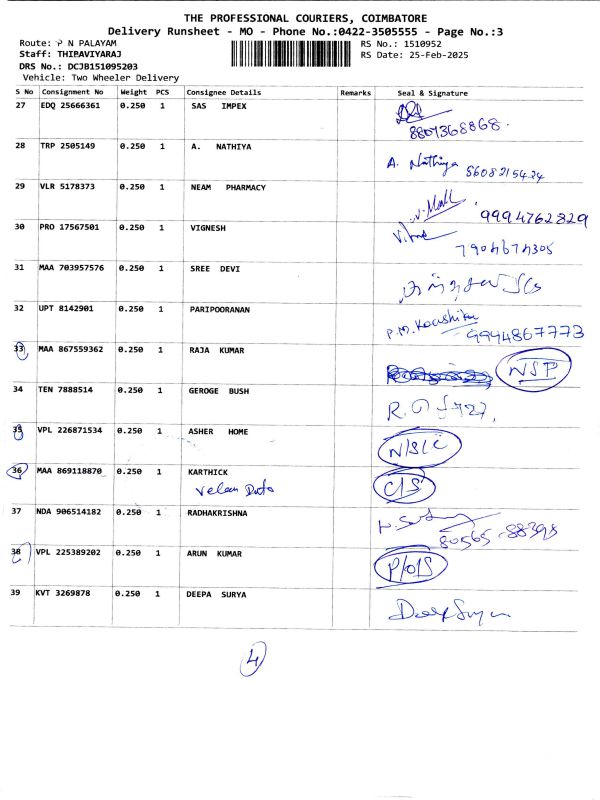 THE PROFESSIONAL COURIERS, COIMBATORE
Delivery Runsheet - MO - Phone No.:0422-3505555 - Page No.:3
Route: P N PALAYAM
RS No.: 1510952
Staff: THIRAVIYARAJ
RS Date: 25-Feb-2025
DRS No.: DCJB151095203
Vehicle: Two Wheeler Delivery
S No Consignment No Weight PCS Consignee Details Remarks Seal & Signature
27 EDQ 25666361 0.250 1 SAS IMPEX
8807368868.
28 TRP 2505149 0.250 1 A. NATHIYA
A. Nathiya 8608215424
29 VLR 5178373 0.250 1 NEAM PHARMACY
9994762829
30 PRO 17567501 0.250 1 VIGNESH
7904674305
31 MAA 703957576 0.250 1 SREE DEVI
32 UPT 8142901 0.250 1 PARIPOORANAN
P.M. Koushika 9994867773
33 MAA 867559362 0.250 1 RAJA KUMAR
NSP
34 TEN 7888514 0.250 1 GEROGE BUSH
35 VPL 226871534 0.250 1 ASHER HOME
N/S/C
36 MAA 869118870 0.250 1 KARTHICK
C/S
37 NDA 906514182 0.250 1 RADHAKRISHNA
80565-88398
38 VPL 225389202 0.250 1 ARUN KUMAR
P/O/S
39 KVT 3269878 0.250 1 DEEPA SURYA
4